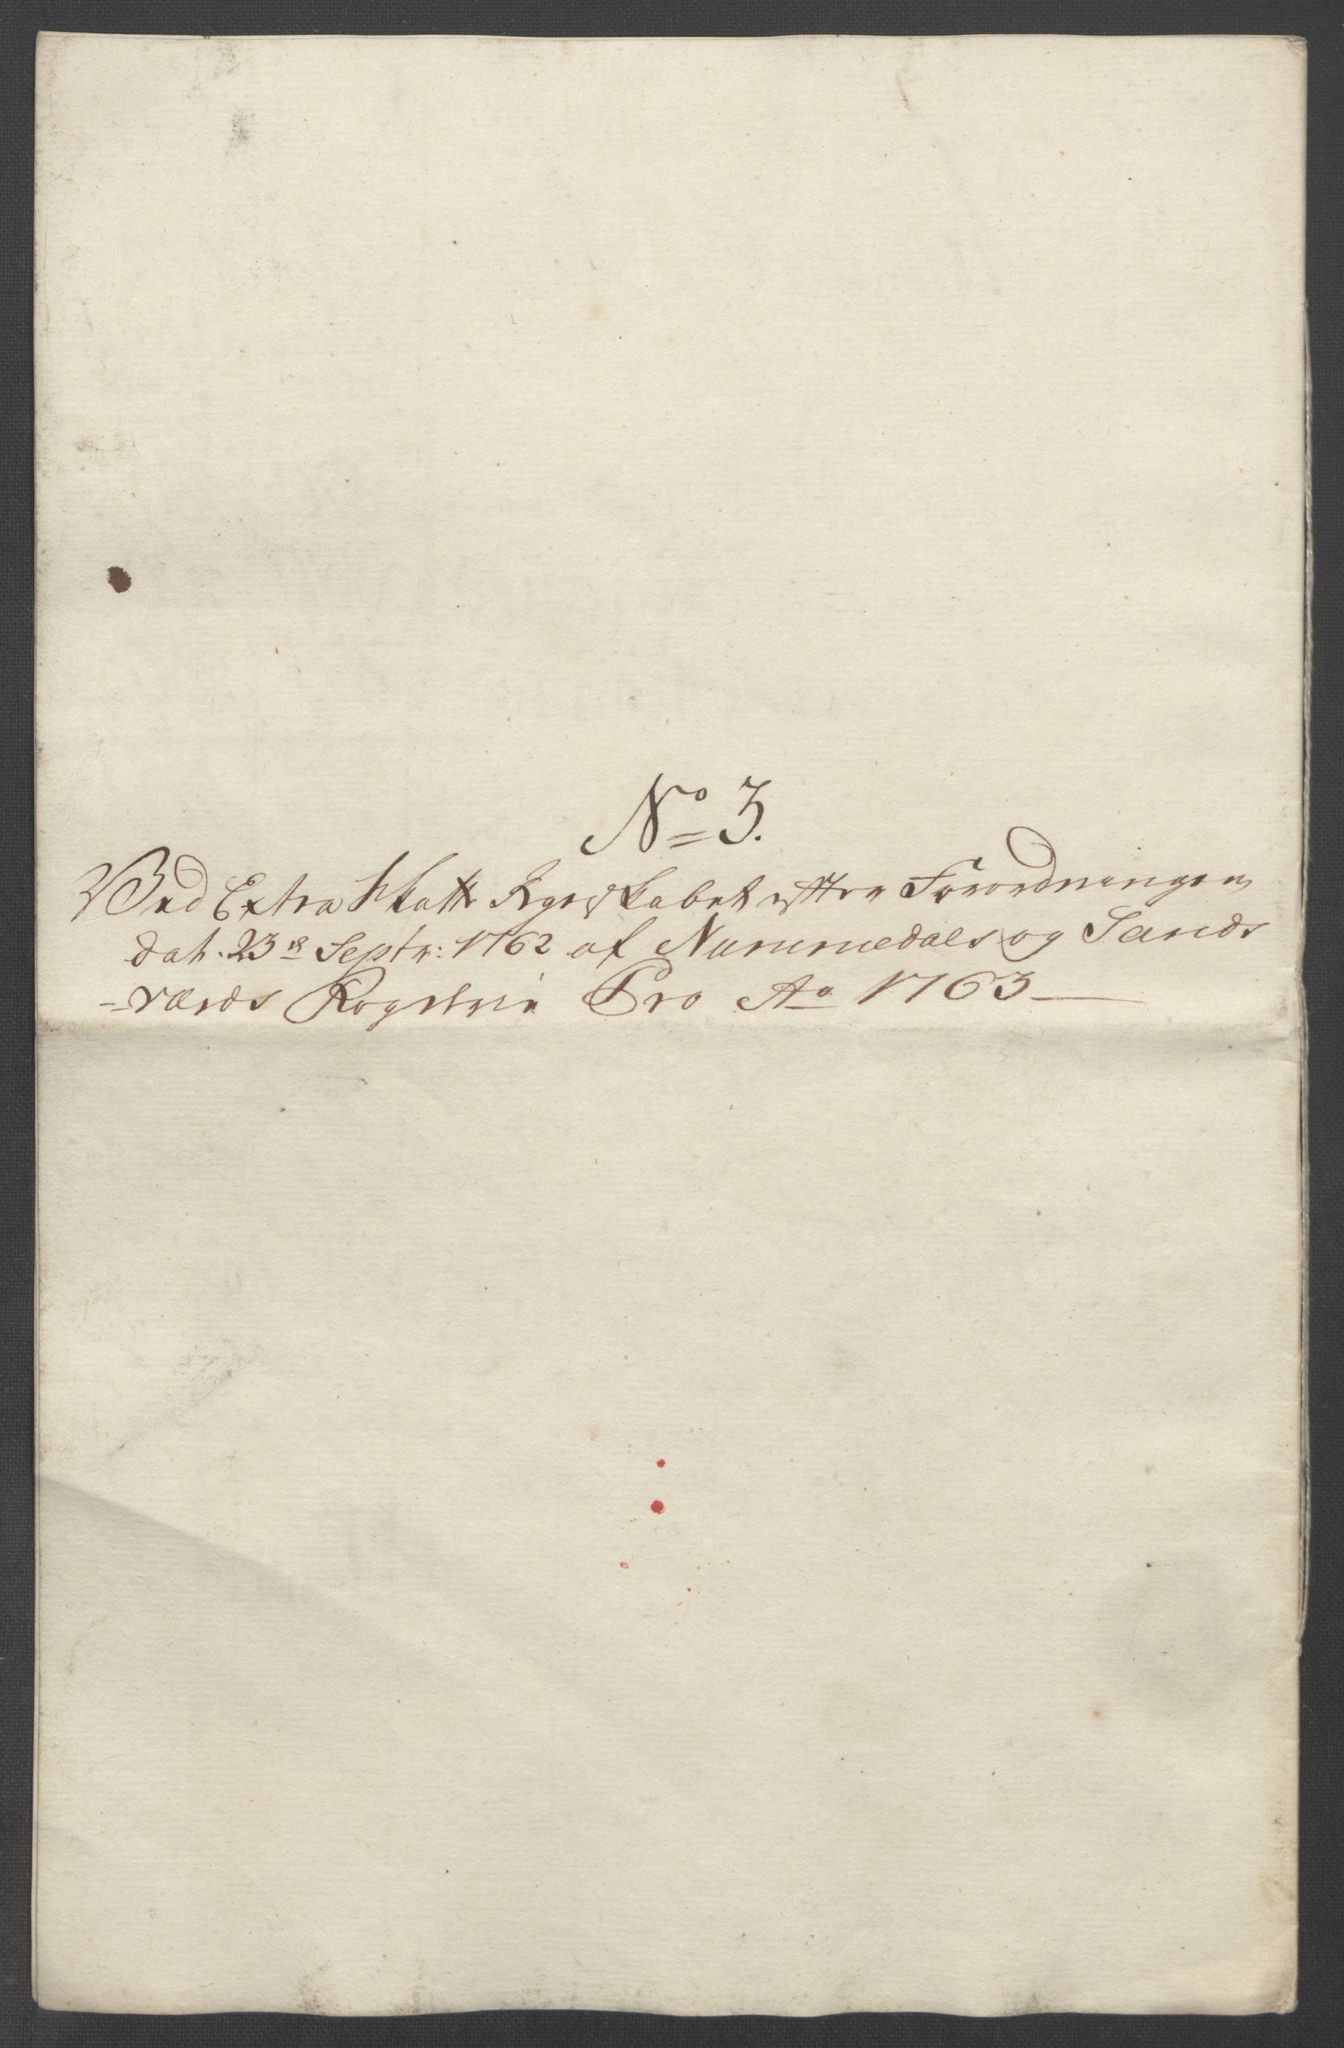 No 3.
Ved Extra Skatte Regnskabet efter Forordningen
dat. 23de Septr: 1762 af Nummedals og Sands
-værds Fogderie Pro Ao 1763